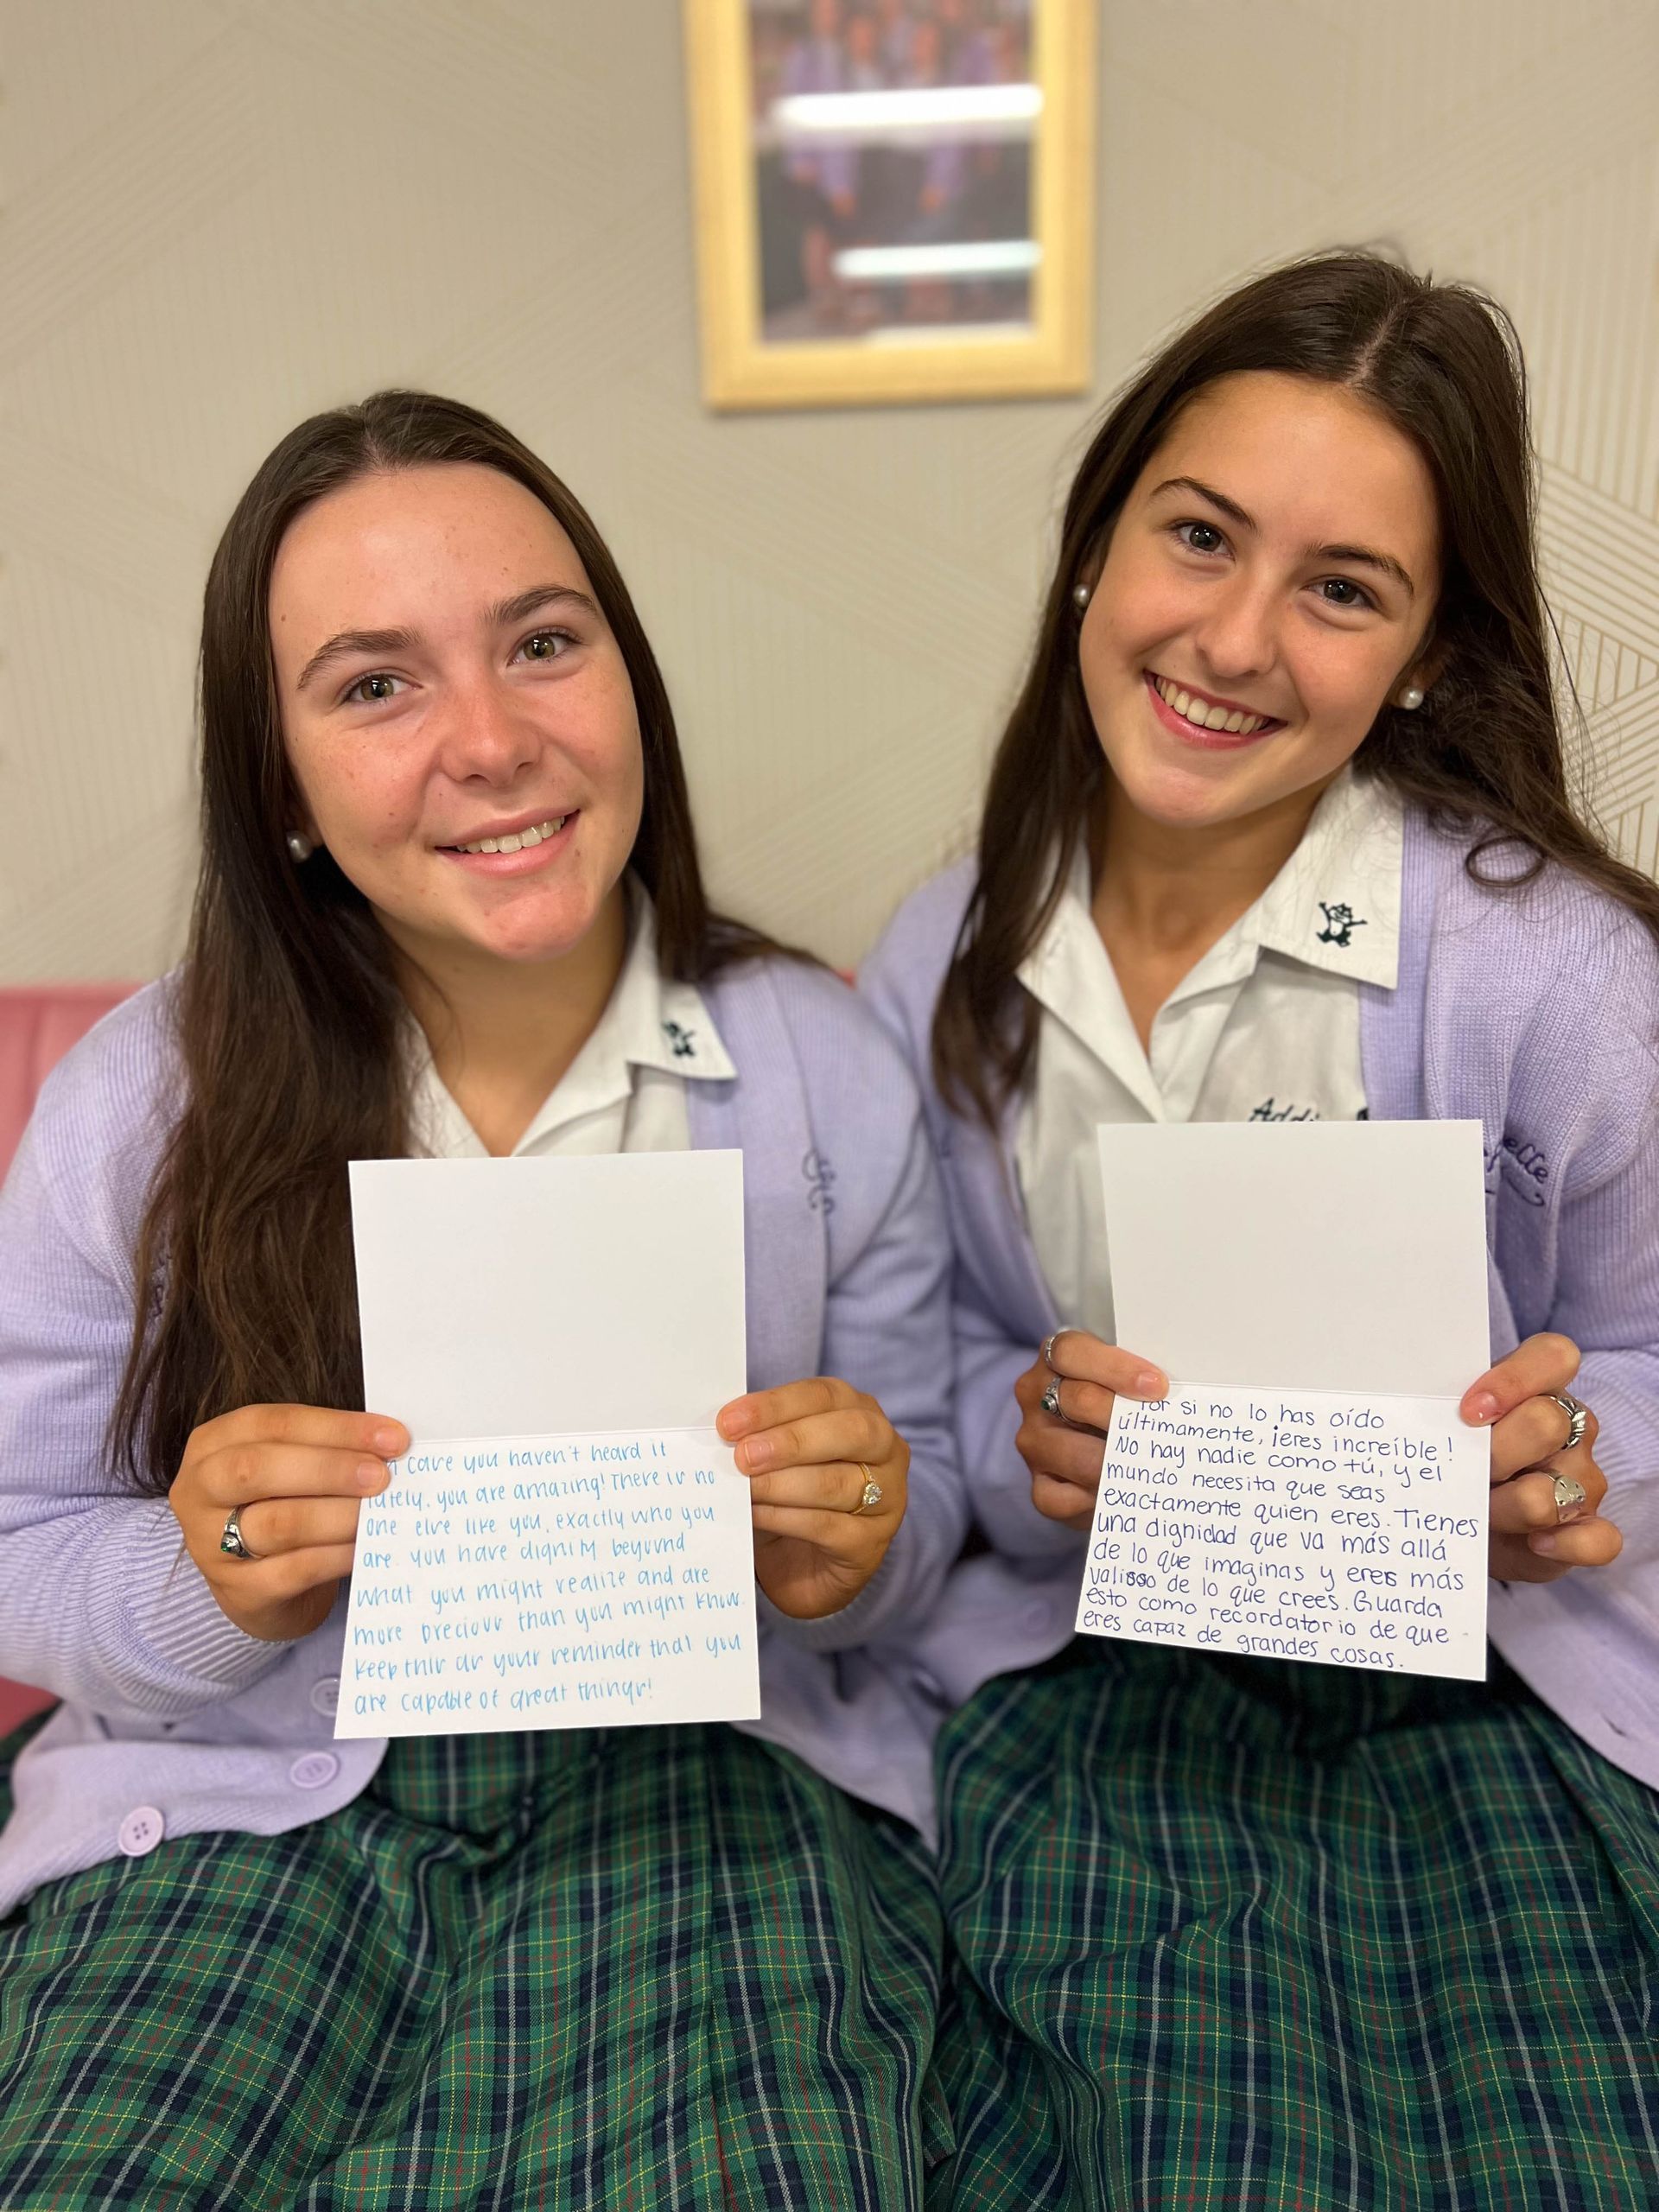 case you haven't heard it
lately, you are amazing! There is no
one else like you, exactly who you
are. you have dignity beyond
what you might realize and are
more precious than you might know.
keep this as your reminder that you
are capable of great things!
Por si no lo has oído
últimamente, ¡eres increíble!
No hay nadie como tú, y el
mundo necesita que seas
exactamente quien eres. Tienes
una dignidad que va más allá
de lo que imaginas y eres más
valioso de lo que crees. Guarda
esto como recordatorio de que
eres capaz de grandes cosas.